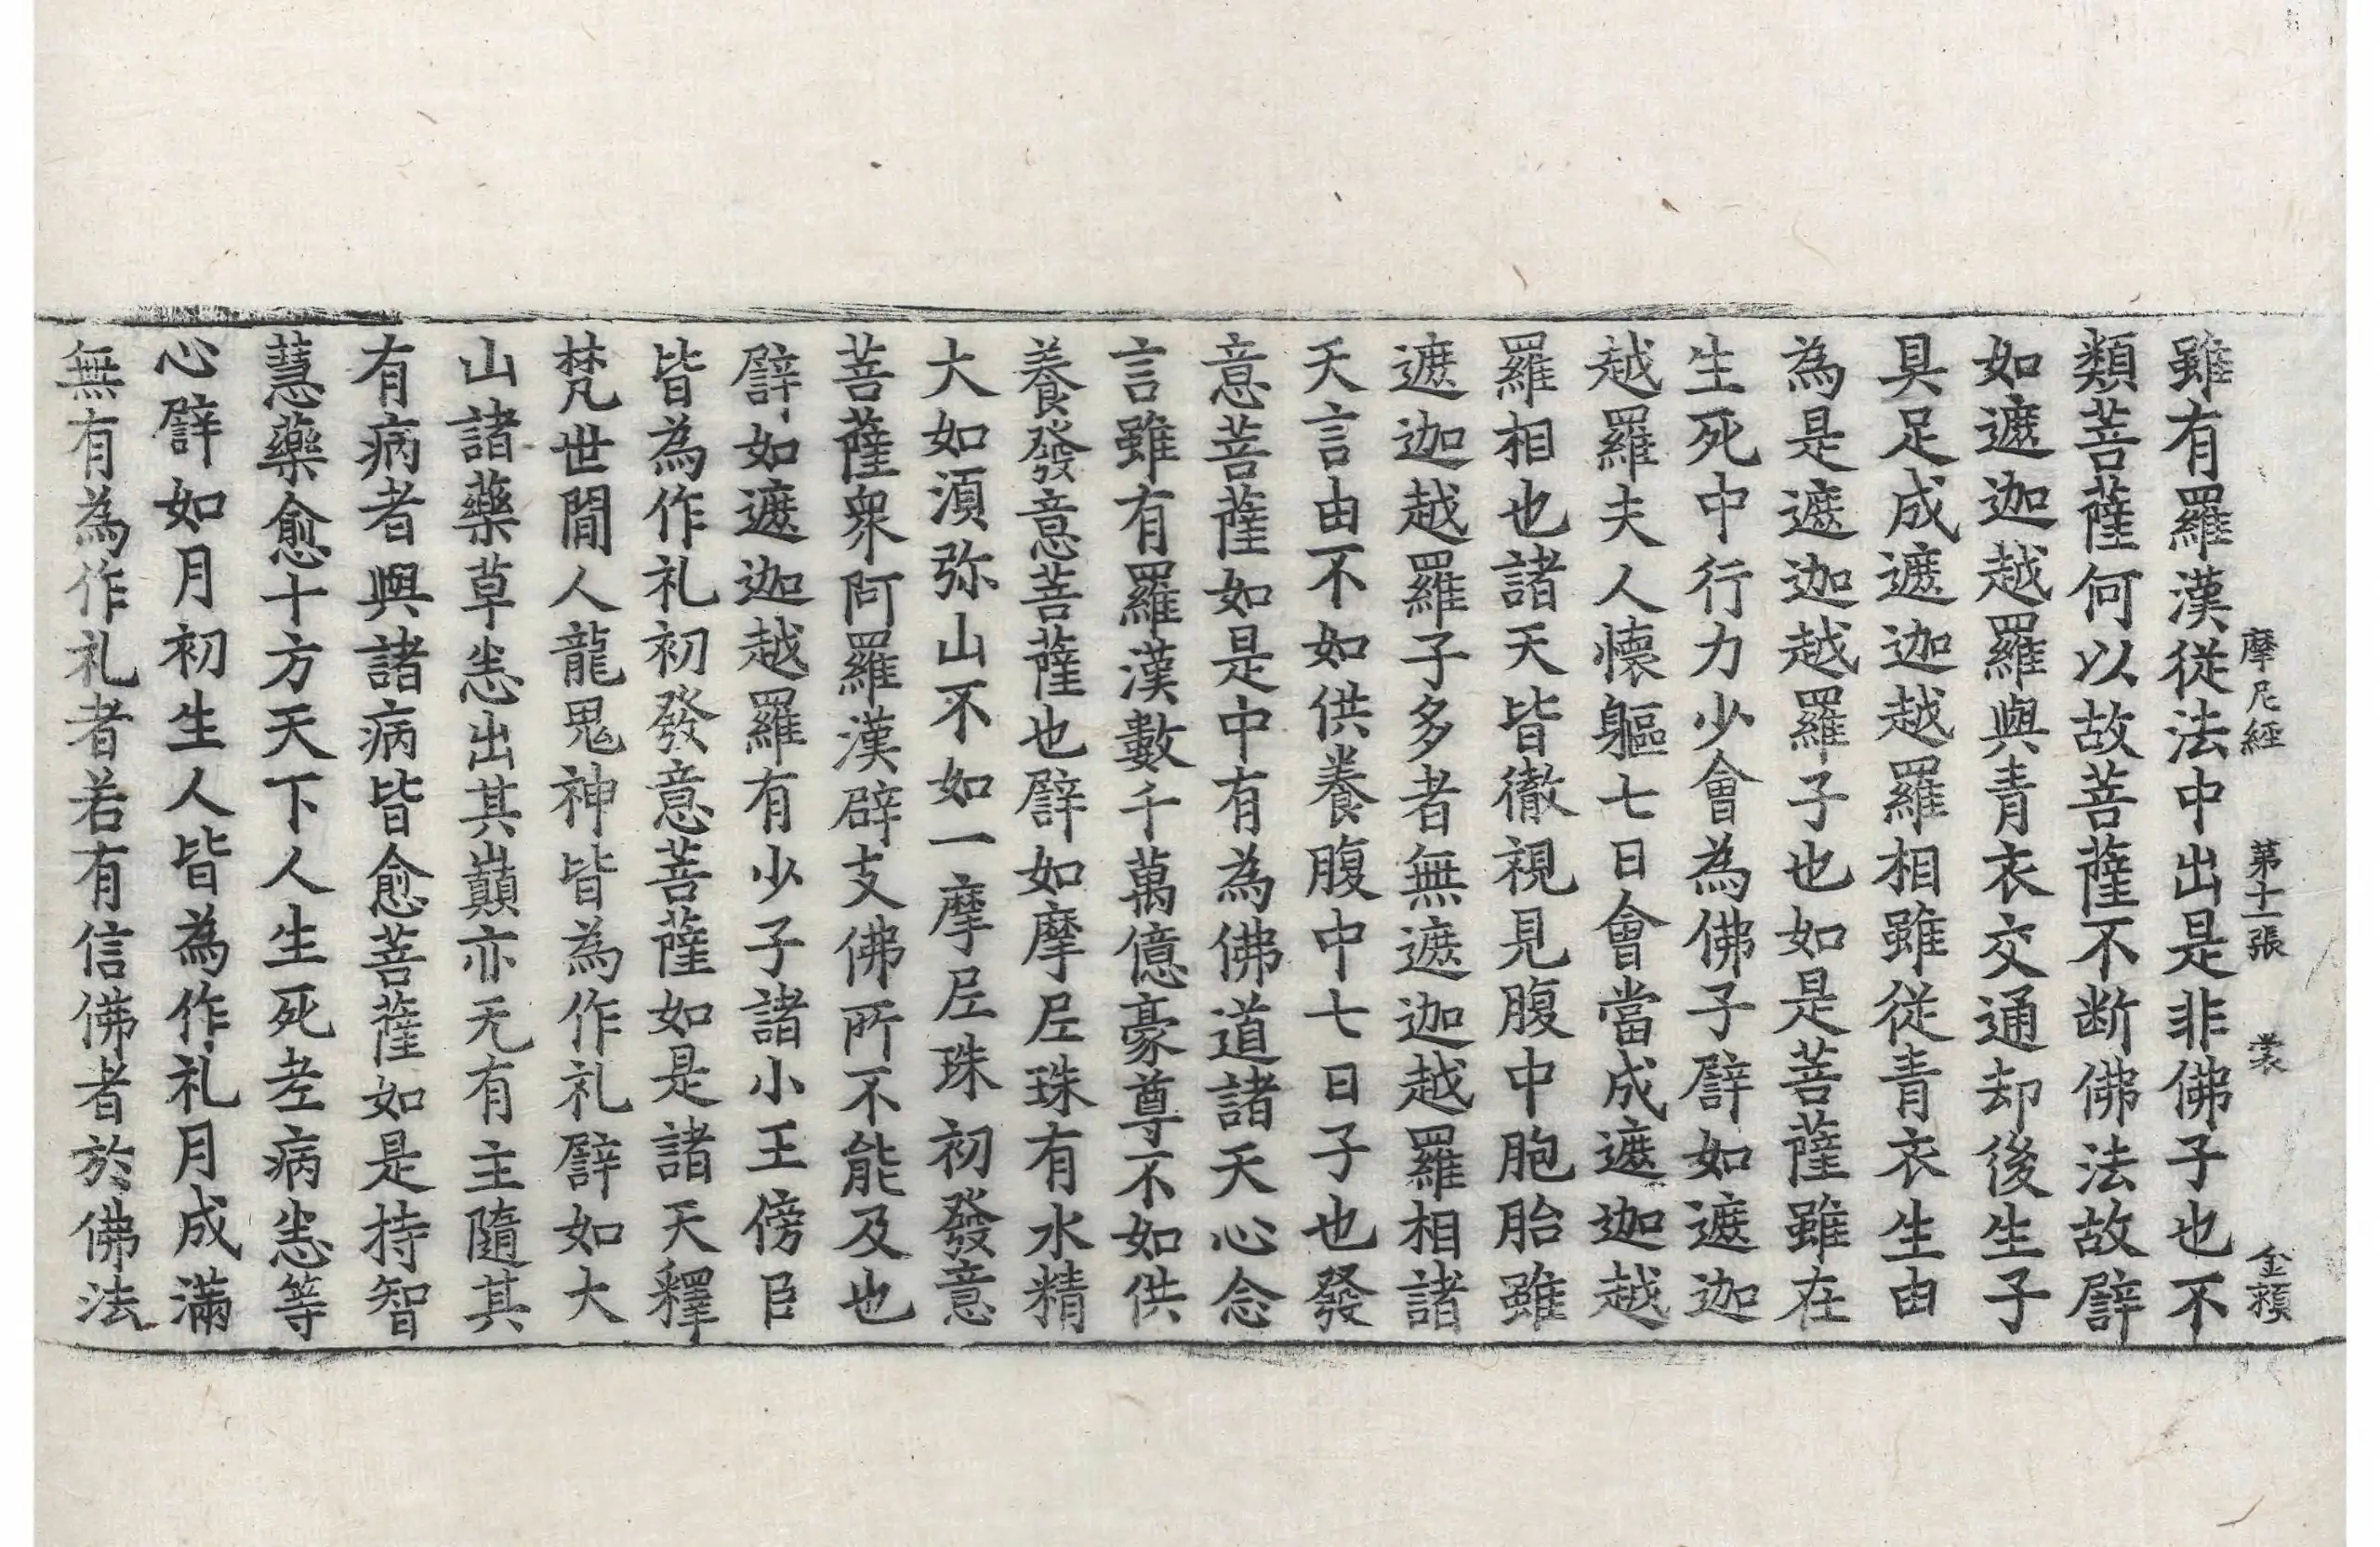 摩尼經 第十一張 裳 金顂
雖有羅漢從法中出是非佛子也不
類菩薩何以故菩薩不断佛法故譬
如遮迦越羅與青衣交通却後生子
具足成遮迦越羅相雖從青衣生由
為是遮迦越羅子也如是菩薩雖在
生死中行力少會為佛子譬如遮迦
越羅夫人懐軀七日會當成遮迦越
羅相也諸天皆徹視見腹中胞胎雖
遮迦越羅子多者無遮迦越羅相諸
天言由不如供養腹中七日子也發
意菩薩如是中有為佛道諸天心念
言雖有羅漢數千萬億豪尊不如供
養發意菩薩也譬如摩尼珠有水精
大如湏弥山不如一摩尼珠初發意
菩薩衆阿羅漢辟支佛所不能及也
譬如遮迦越羅有少子諸小王傍臣
皆為作礼初發意菩薩如是諸天釋
梵世閒人龍鬼神皆為作礼譬如大
山諸藥草恙出其巔亦无有主隨其
有病者與諸病皆愈菩薩如是持智
慧藥愈十方天下人生死老病恙等
心譬如月初生人皆為作礼月成滿
無有為作礼者若有信佛者於佛法